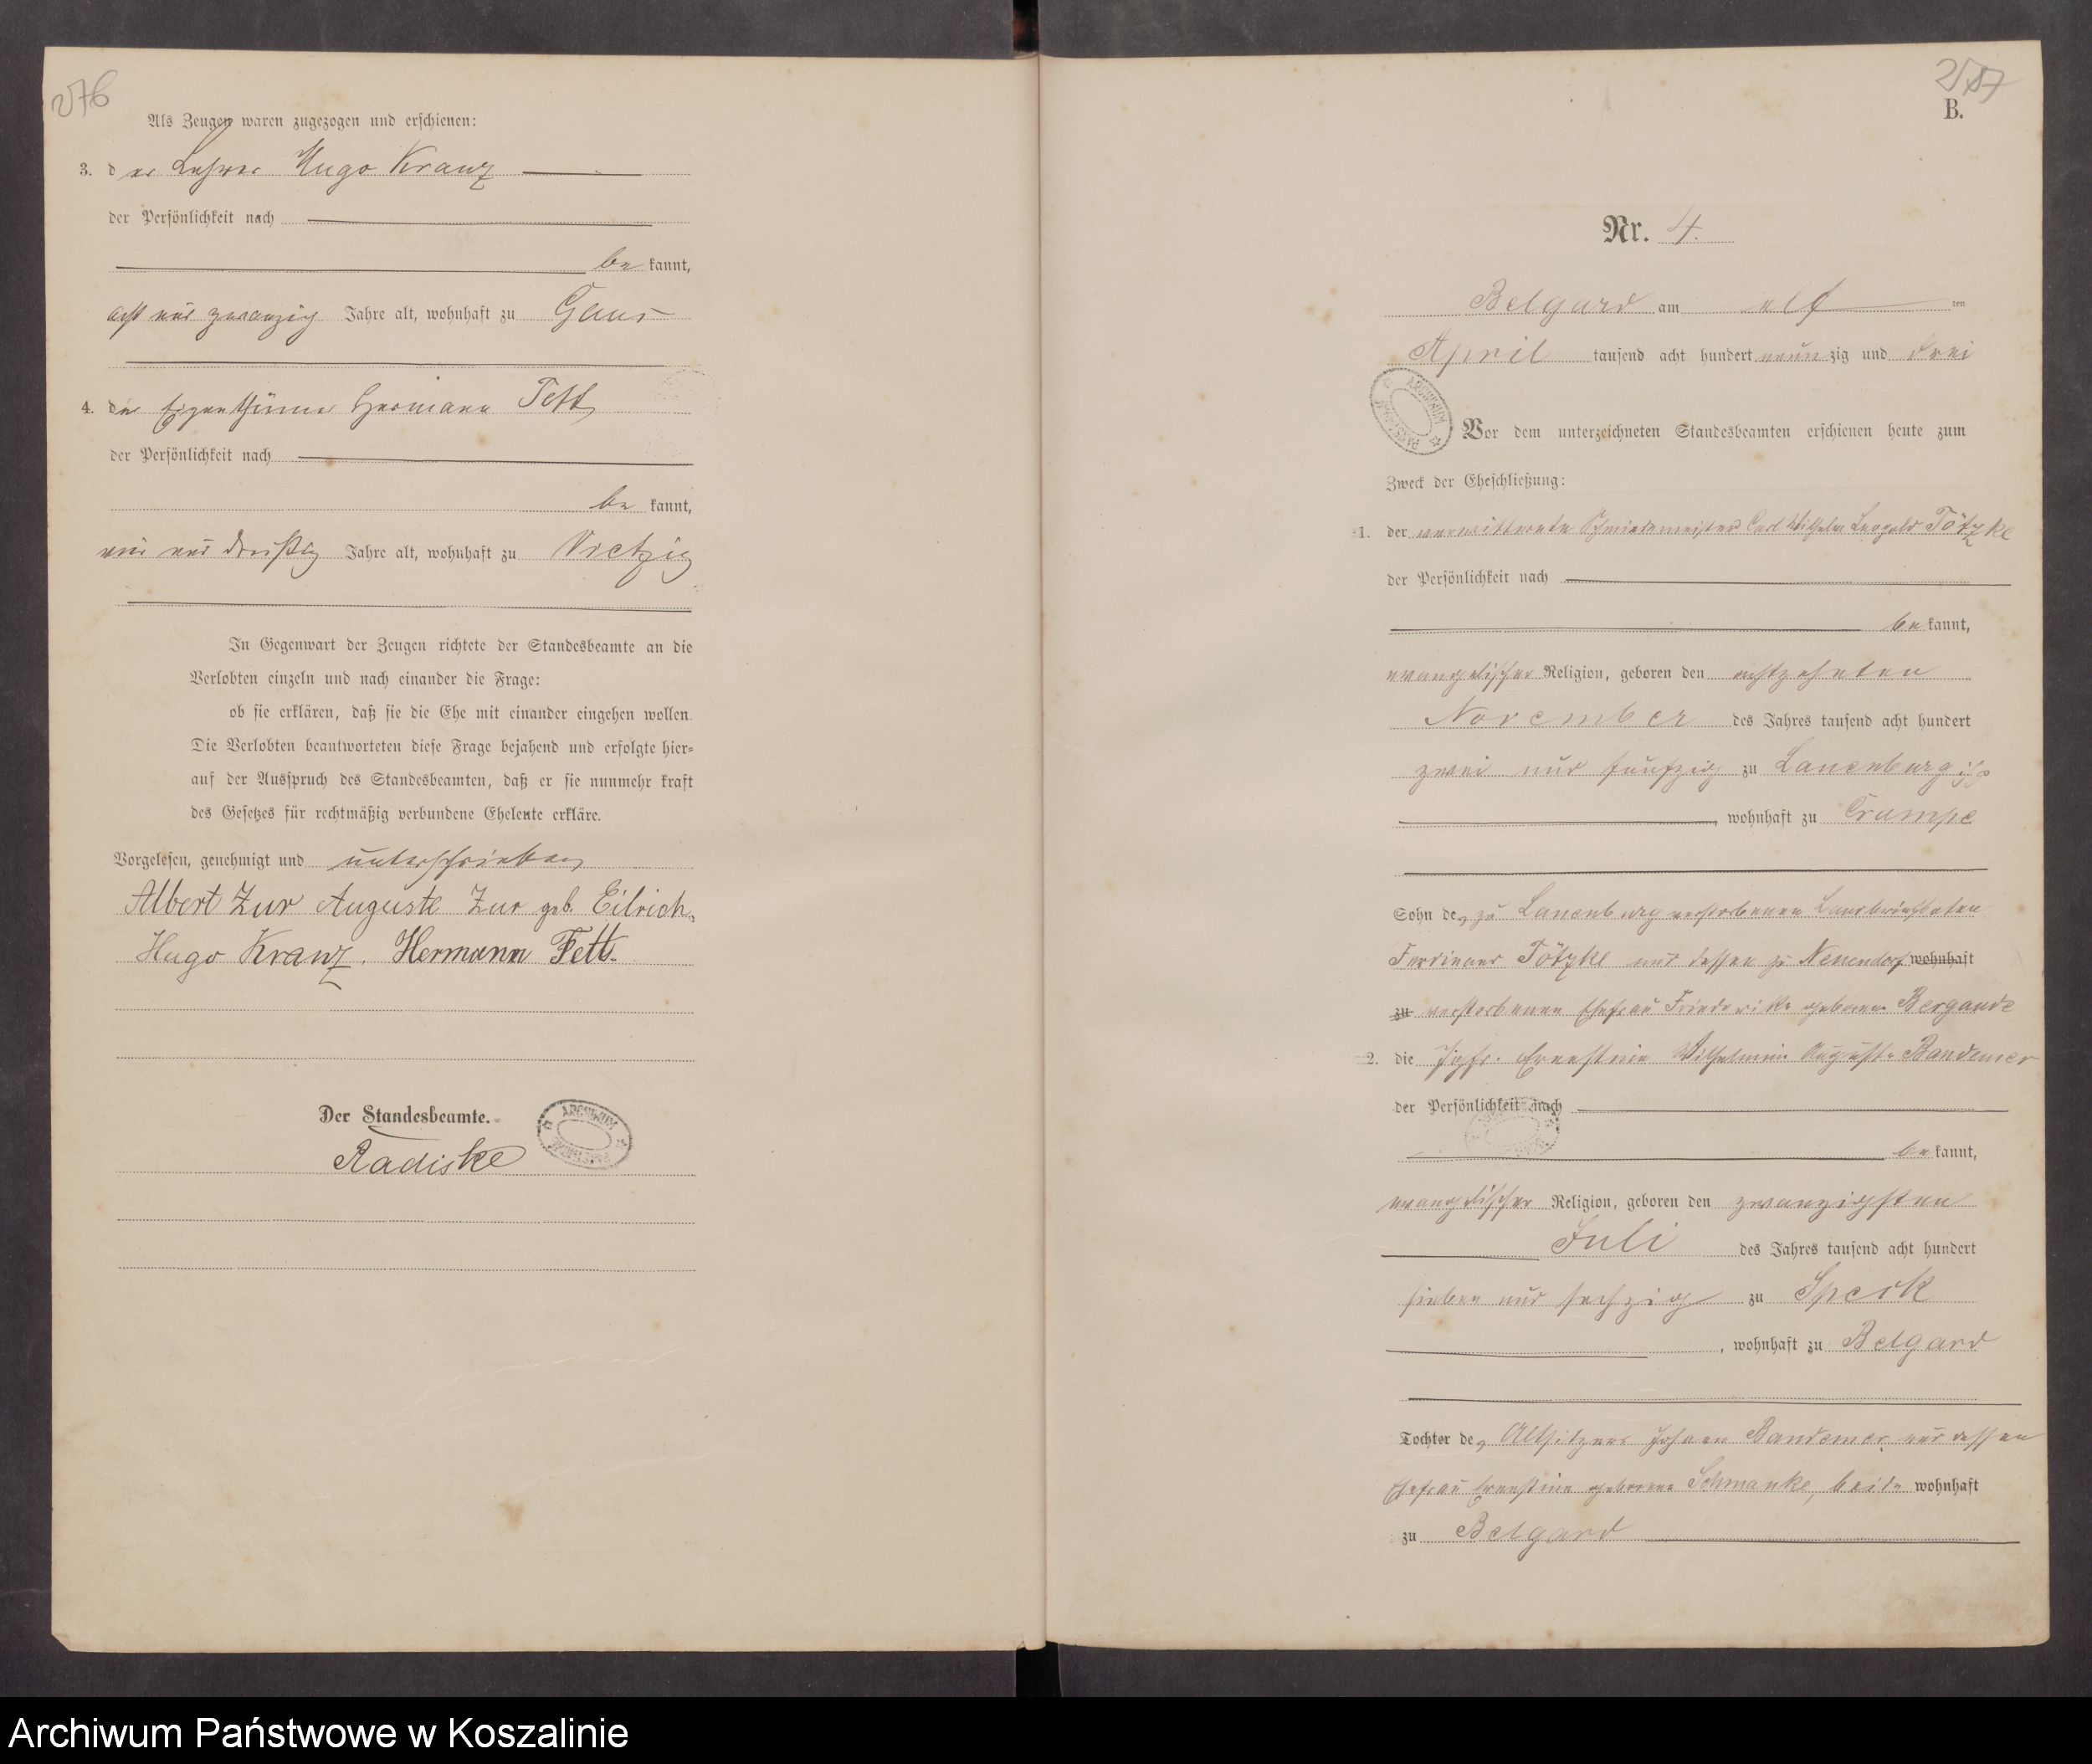 276
Als Zeugen waren zugezogen und erschienen:
3. der Lehrer Hugo Kranz
der Persönlichkeit nach
bekannt,
acht und zwanzig Jahre alt, wohnhaft zu Gans
4. der Eigenthümer Hermann Fett
der Persönlichkeit nach
bekannt,
ein und dreißig Jahre alt, wohnhaft zu Vietzig
In Gegenwart der Zeugen richtete der Standesbeamte an die
Verlobten einzeln und nach einander die Frage:
ob sie erklären, daß sie die Ehe mit einander eingehen wollen.
Die Verlobten beantworteten diese Frage bejahend und erfolgte hier-
auf der Ausspruch des Standesbeamten, daß er sie nunmehr kraft
des Gesetzes für rechtmäßig verbundene Eheleute erkläre.
Vorgelesen, genehmigt und unterschrieben
Albert Zur Auguste Zur geb. Eilrich.
Hugo Kranz. Hermann Fett.
Der Standesbeamte.
Radiske
B.
Nr. 4.
Belgard am elf ten
April tausend acht hundert neunzig und drei
Vor dem unterzeichneten Standesbeamten erschienen heute zum
Zweck der Eheschließung:
1. der verwittwete Schmiedemeister Carl Wilhelm Leopold Tötzke
der Persönlichkeit nach
bekannt,
evangelischer Religion, geboren den achtzehnten
November des Jahres tausend acht hundert
zwei und fünfzig zu Lauenburg i/P
, wohnhaft zu Crampe
Sohn des zu Lauenburg verstorbenen
Ferdinand Tötzke und dessen zu Neuendorf wohnhaft
zu verstorbenen Ehefrau Friederike geborene Bergande
2. die Jgfr. Ernestine Wilhelmine Auguste Bandemer
der Persönlichkeit nach
bekannt,
evangelischer Religion, geboren den zwanzigsten
Juli des Jahres tausend acht hundert
sieben und sechzig zu Speck
, wohnhaft zu Belgard
Tochter des Altsitzers Johann Bandemer und dessen
Ehefrau Ernestine geborene Schmanke, beide wohnhaft
zu Belgard
Archiwum Państwowe w Koszalinie